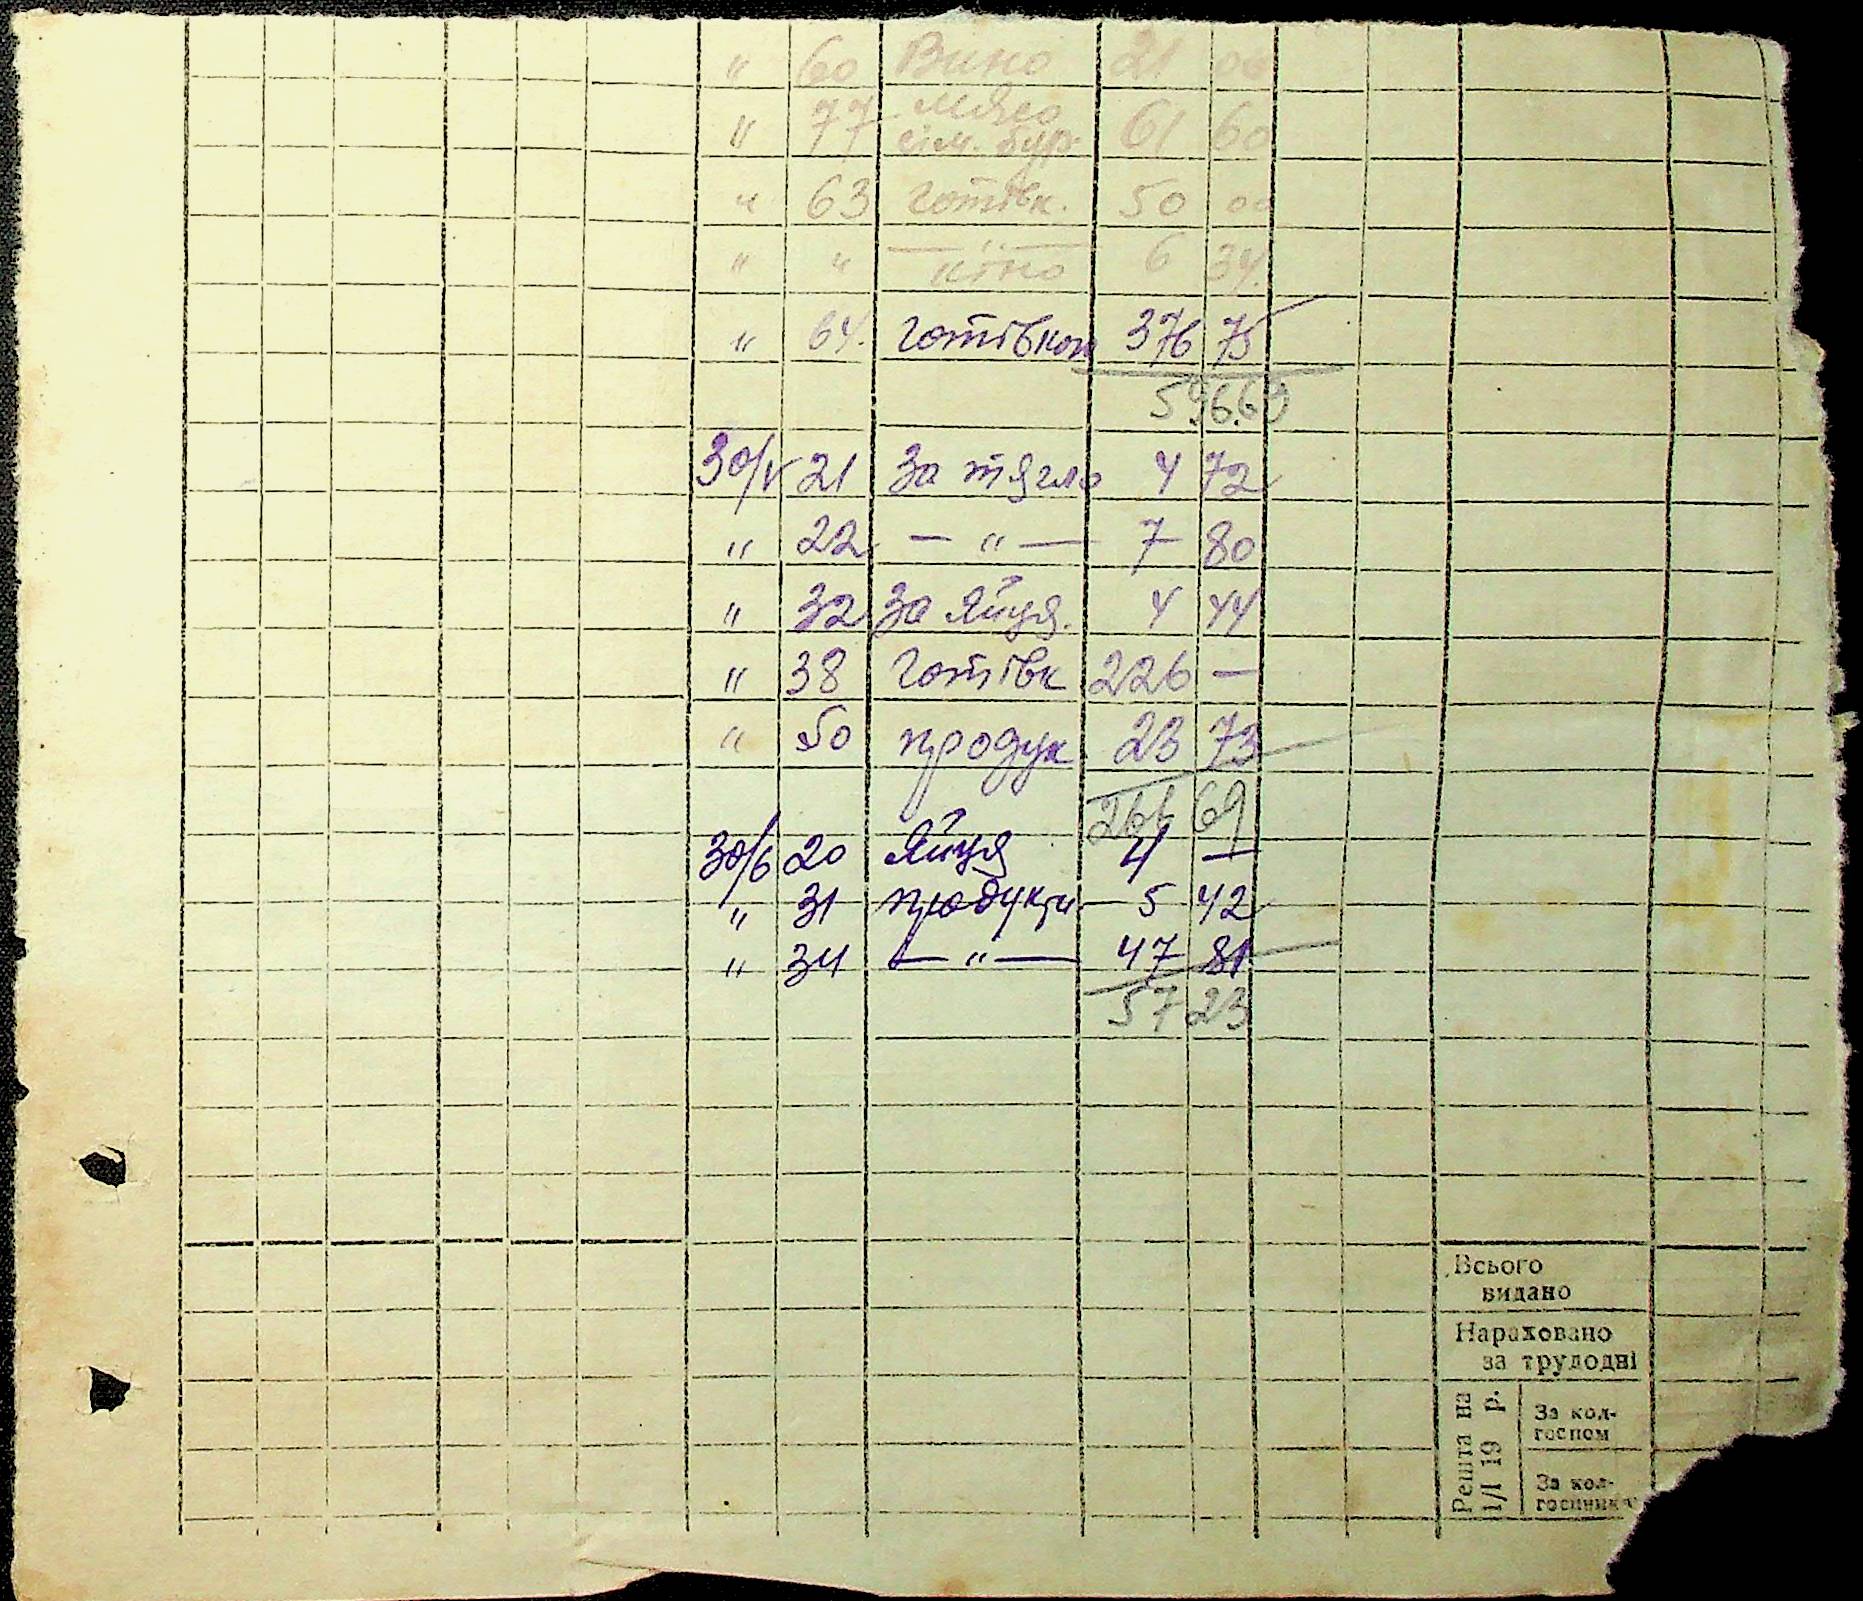 " 60 Вино 21 00
" 77 мясо
сім. бур. 61 60
" 63 готівк. 50 00
" " — " —
кіно 6 34.
" 64. готівкою 376 75
596.69
30/V 21 За тягло 4 72
" 22 — " — 7 80
" 32 За яйця. 4 44
" 38 Готівк 226 —
" 50 продук 23 73
266 69
30/6 20 Яйця 4 —
" 31 продукти 5 42
" 34 — " — 47 81
57 23
Всього
видано
Нараховано
за трудодні
Решта на
1/I 19 р.
За кол-
госпом
За кол-
госпником